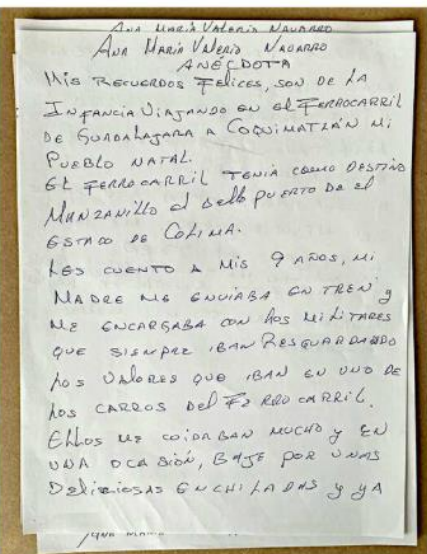 Ana María Valerio Navarro
Ana María Valerio Navarro
ANÉCDOTA
Mis Recuerdos Felices, son de la
Infancia Viajando en el Ferrocarril
de Guadalajara a Coquimatlán mi
Pueblo natal.
El Ferrocarril tenía como destino
Manzanillo el bello puerto de el
Estado de Colima.
Les cuento a mis 9 años, mi
Madre me enviaba en tren y
me encargaba con los militares
que siempre iban resguardando
los valores que iban en uno de
los carros del Ferrocarril.
Ellos me cuidaban mucho y en
una ocasión, baje por unas
Deliciosas enchiladas y ya